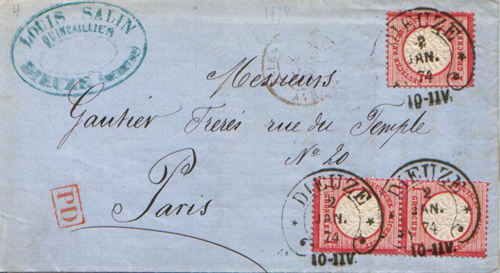 LOUIS SALIN
QUINCAILLIER
DIEUZE
2
JAN.
74
10-11V.
Messieurs
Gautier Frères rue du Temple
No 20
Paris
PD
DIEUZE
2
JAN.
74
10-11V.
DIEUZE
2
JAN.
74
10-11V.